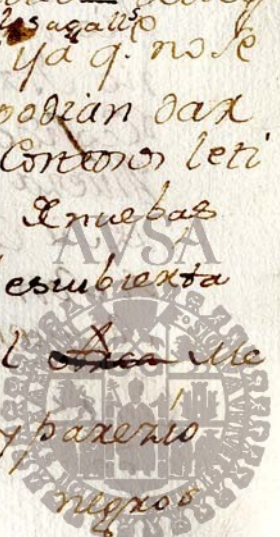 ya q. no se
podian dar
Contoron leti
Enuebas
AVSA
escubierta
l Me
y parezio
negros